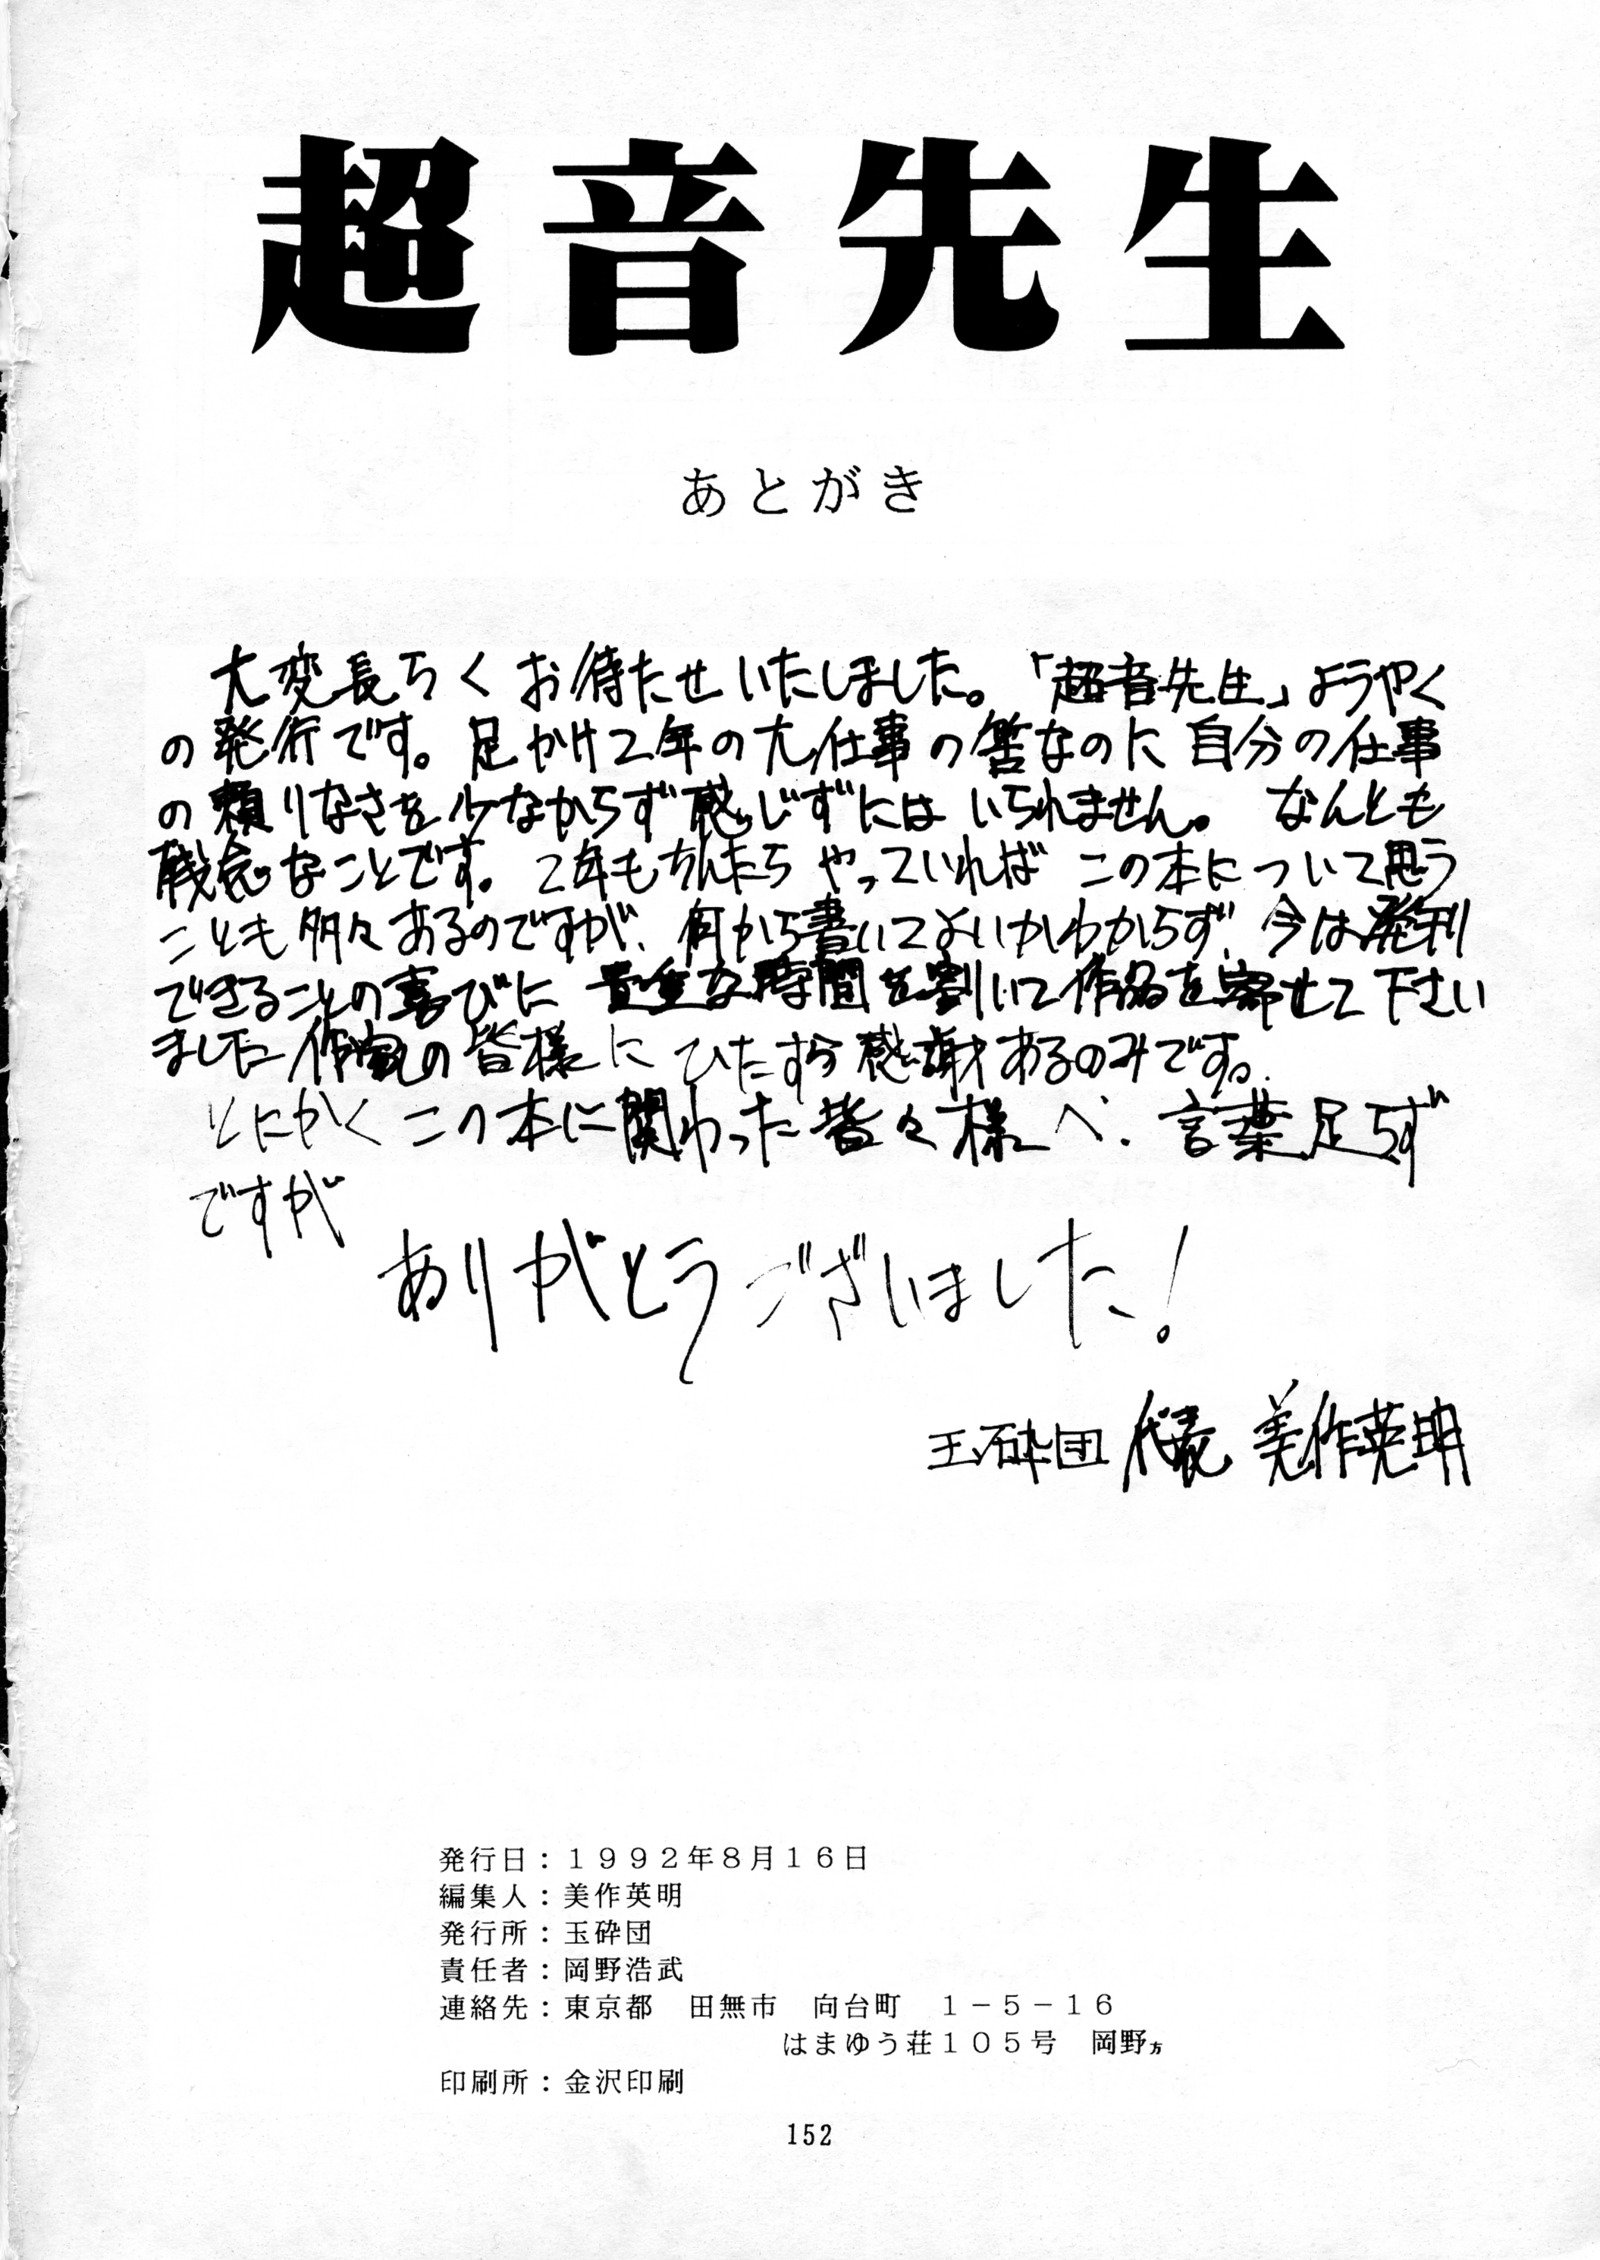 超音先生
あとがき
大変長らくお待たせいたしました。「超音先生」ようやく
の発行です。足かけ2年の大仕事の筈なのに自分の仕事
の頼りなさを少なからず感じずにはいられません。なんとも
残念なことです。2年もちんたらやっていればこの本について思う
ことも多々あるのですが、何から書いてよいかわからず、今は発刊
できることの喜びに貴重な時間を割いて作品を寄せて下さい
ました作家の皆様にひたすら感謝あるのみです。
とにかくこの本に関わった皆々様へ、言葉足らず
ですが
ありがとうございました!
玉砕団 代表 美作英明
発行日：１９９２年８月１６日
編集人：美作英明
発行所：玉砕団
責任者：岡野浩武
連絡先：東京都　田無市　向台町　１－５－１６
はまゆう荘１０５号　岡野方
印刷所：金沢印刷
152